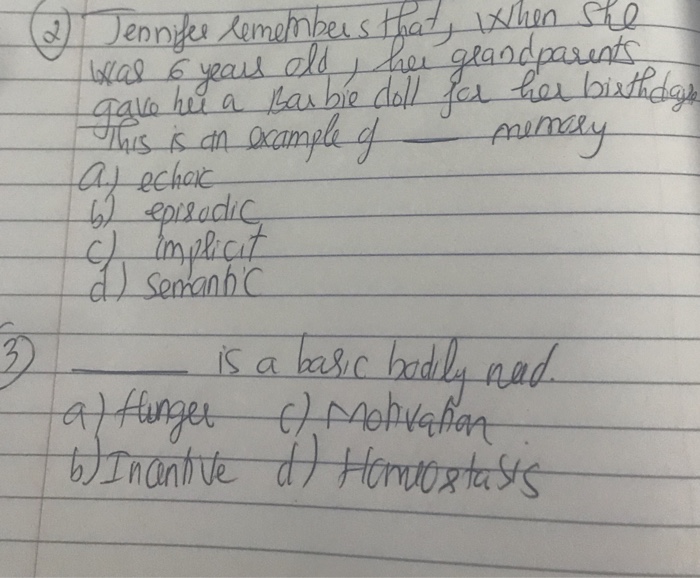 2) Jennifer remembers that, when she
was 6 years old, her grandparents
gave her a Barbie doll for her birthday
This is an example of ____ memory
a) echoic
b) episodic
c) implicit
d) semantic
3) ____ is a basic bodily need.
a) Hunger c) Motivation
b) Incentive d) Homeostasis